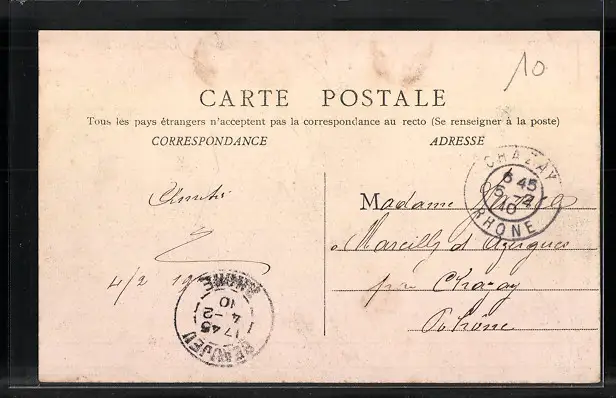 10
CARTE POSTALE
Tous les pays étrangers n'acceptent pas la correspondance au recto (Se renseigner à la poste)
CORRESPONDANCE
ADRESSE
CHAZAY
6 45
5 - 2
10
RHONE
Amitié
Madame
Marcilly d'Azergues
par Chazay
Rhône
4/2 10
RHONE
17 45
4 - 2
10
BEAUJEU